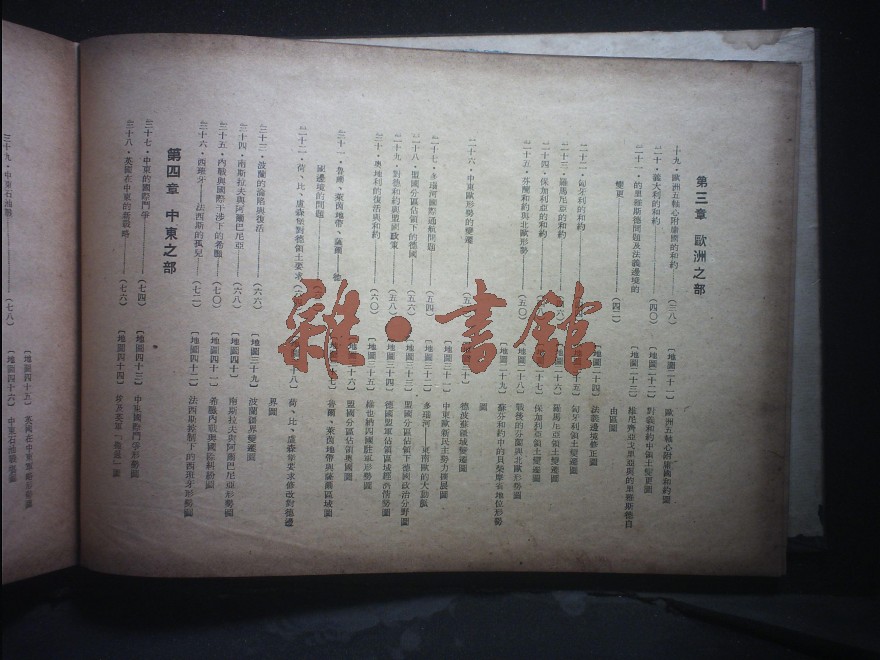 第三章 歐洲之部
十九・歐洲五軸心附庸國的和約——(三八)
〔地圖二十一〕 歐洲五軸心附庸國和約圖
二十・義大利的和約——(四〇)
〔地圖二十二〕 對義和約中領土變更圖
二十一・的里雅斯德問題及法義邊境的
變更——(四二)
〔地圖二十三〕 維尼齊亞戈里亞與的里雅斯德自
由區圖
〔地圖二十四〕 法義邊境修正圖
二十二・匈牙利的和約
匈牙利領土變遷圖
二十三・羅馬尼亞的和約
羅馬尼亞領土變遷圖
二十四・保加利亞的和約
保加利亞領土變遷圖
二十五・芬蘭和約與北歐形勢——(五〇)
戰後的芬蘭與北歐形勢圖
〔地圖二十九〕 蘇芬和約中的貝柴摩索地位形勢
圖
二十六・中東歐形勢的變遷
德波蘇領域變遷圖
〔地圖三十一〕 中東歐新民主勢力擴展圖
二十七・多瑙河國際通航問題——(五四)
〔地圖三十二〕 多瑙河——東南歐的大動脈
二十八・盟國分區佔領下的德國——(五六)
〔地圖三十三〕 盟國分區佔領下德國政治分野圖
二十九・對德和約與盟國歐東——(五八)
〔地圖三十四〕 德國盟軍佔領區域經濟形勢圖
三十・奧地利的復活與和約——(六〇)
〔地圖三十五〕 維也納四國駐軍形勢圖
盟國分區佔領奧國圖
三十一・魯爾、萊茵地帶、薩爾——德
國邊境的問題
魯爾、萊茵地帶與薩爾區域圖
三十二・荷、比、盧森堡對德領土要求
荷、比、盧森堡要求修改對德邊
界圖
三十三・波蘭的淪陷與復活——(六六)
〔地圖三十九〕 波蘭疆界變遷圖
三十四・南斯拉夫與阿爾巴尼亞——(六八)
〔地圖四十〕 南斯拉夫與阿爾巴尼亞形勢圖
三十五・內戰與國際干涉下的希臘——(七〇)
〔地圖四十一〕 希臘內戰與國際糾紛圖
三十六・西班牙——法西斯的孤兒——(七二)
〔地圖四十二〕 法西斯控制下的西班牙形勢圖
第四章 中東之部
三十七・中東的國際鬥爭——(七四)
〔地圖四十三〕 中東國際鬥爭形勢圖
三十八・英國在中東的新戰略——(七六)
〔地圖四十四〕 埃及英軍
〔地圖四十五〕 英國在中東
三十九・中東石油戰——(七八)
〔地圖四十六〕 中東石油
雜・書館